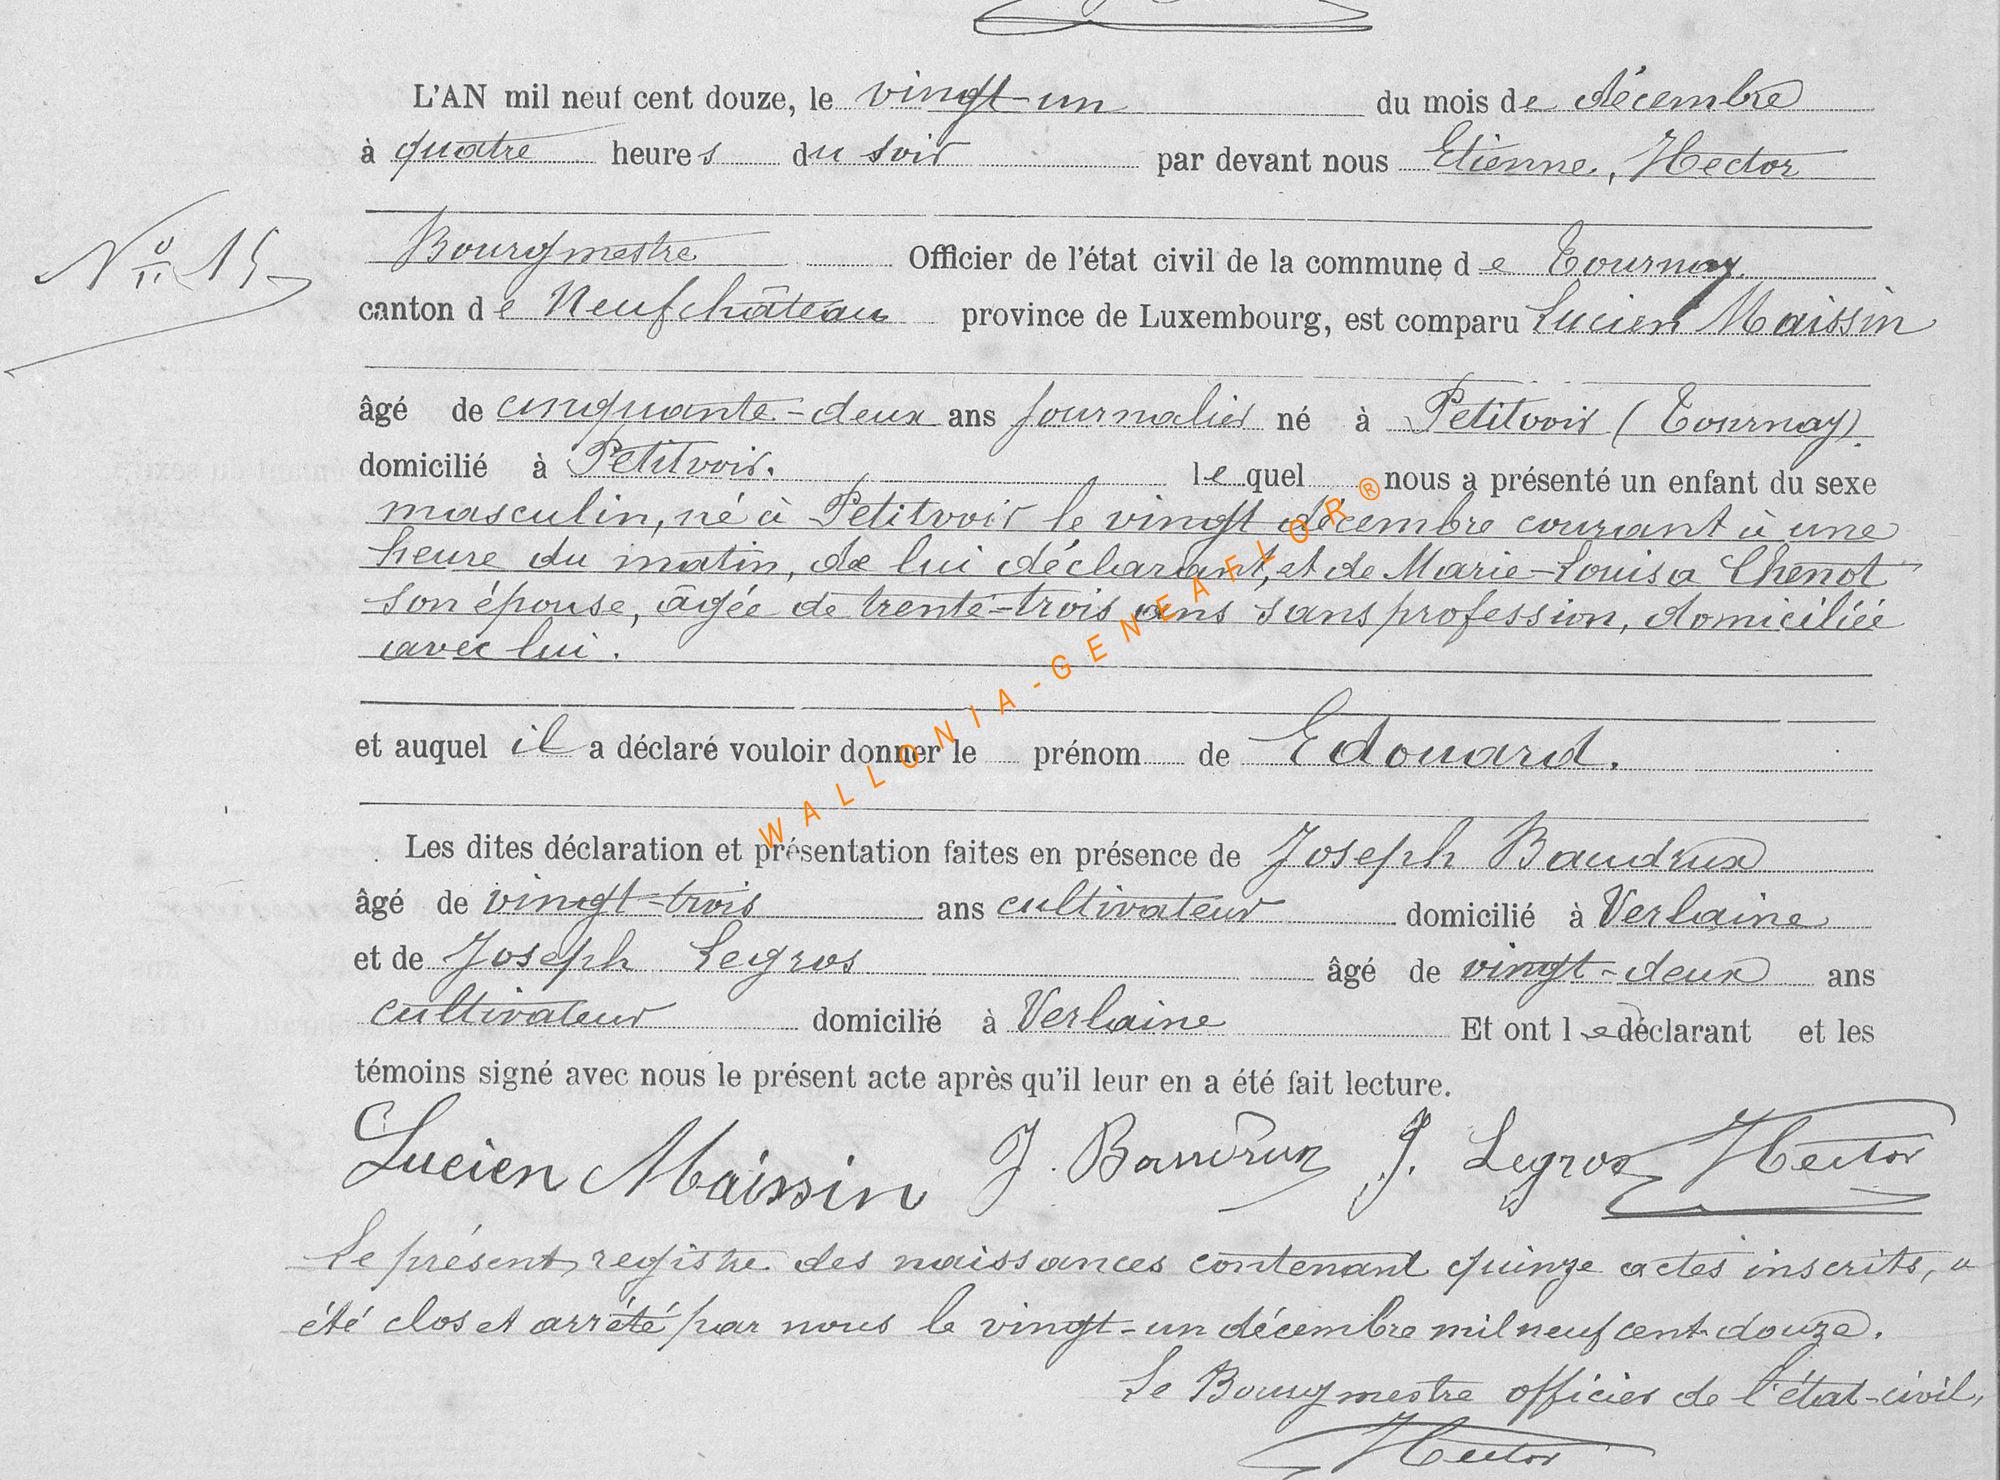 L'AN mil neuf cent douze, le vingt-un du mois de décembre
à quatre heures du soir par devant nous Etienne, Hector
Bourgmestre Officier de l'état civil de la commune de Tournay
N° 15
canton de Neufchâteau province de Luxembourg, est comparu Lucien Maissin
âgé de cinquante-deux ans journalier né à Petitvoir (Tournay)
domicilié à Petitvoir. lequel nous a présenté un enfant du sexe
masculin, né à Petitvoir le vingt décembre courant à une
heure du matin, de lui déclarant, et de Marie-Louisa Chenot
son épouse, âgée de trente-trois ans sans profession, domiciliée
avec lui.
et auquel il a déclaré vouloir donner le prénom de Edouard.
Les dites déclaration et présentation faites en présence de Joseph Baudrux
âgé de vingt-trois ans cultivateur domicilié à Verlaine
et de Joseph Legros âgé de vingt-deux ans
cultivateur domicilié à Verlaine Et ont le déclarant et les
témoins signé avec nous le présent acte après qu'il leur en a été fait lecture.
Lucien Maissin J. Baudrux J. Legros Hector
Le présent registre des naissances contenant quinze actes inscrits, a
été clos et arrêté par nous le vingt-un décembre mil neuf cent douze.
Le Bourgmestre officier de l'état-civil,
Hector
WALLONIA-GENEAFLOR®